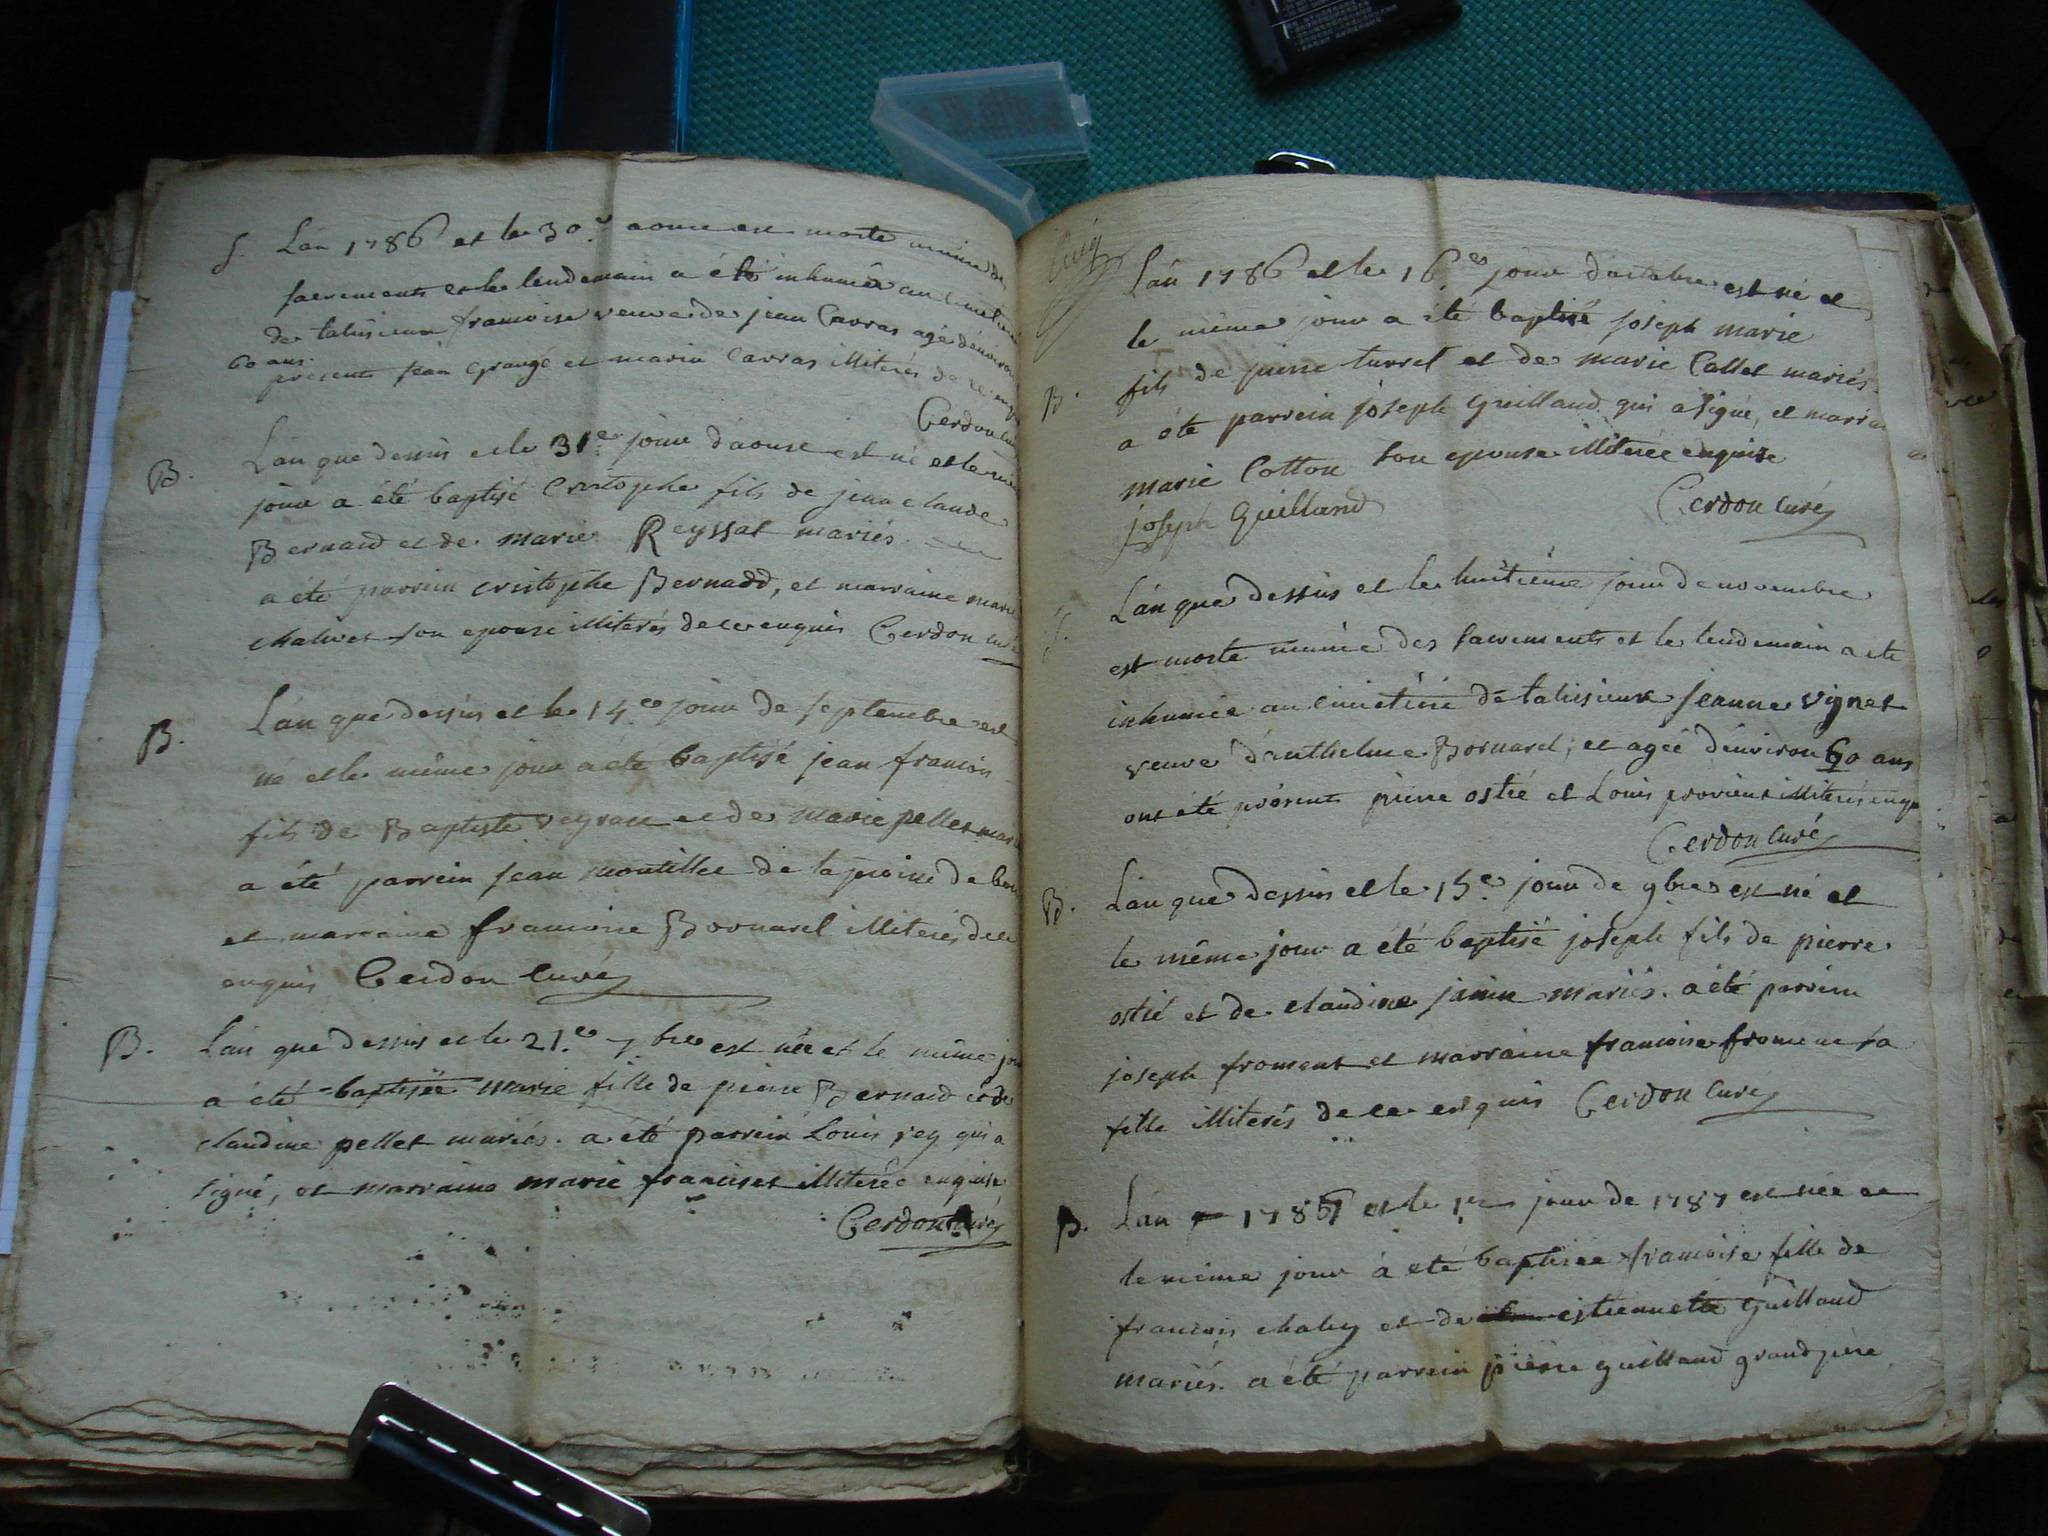 S. L'an 1786 et le 30e aoust est morte munie de
sacrements et le lendemain a été inhumée au
de talissieux francoise veuve de jean Carras agé d'environ
60 ans.
présents jean Grangé et marin Carras illiterés de ce
Cerdon curé
B. L'an que dessus et le 31er jour d'aoust est né et le
jour a été baptisé Cristophe fils de jean claude
Bernard et de marie Reyssat mariés.
a été parrein cristophe Bernadd, et marraine marie
chalivet son epouse illiterés de ce enquis Cerdon curé
B. L'an que dessus et le 14eo jour de septembre est
né et le même jour a eté baptisé jean francois
fils de Baptiste veyron et de marie pellet
a été parrein jean montillet de la paroisse de
et marraine francoise Bornarel illiterés de ce
enquis Cerdon curé
B. L'an que dessus et le 21.eo 7bre est née et le même
a été baptisée marie fille de pierre Bernard et de
claudine pellet mariés. a été parrein Louis rey qui a
signé, et marraine marie francises illiterée enquise
Cerdon curé
L'an 1786 et le 16.eo jour d'octobre est né et
le même jour a été baptisé joseph marie
B. fils de pierre turrel et de marie Callet mariés.
a été parrein joseph Guilland qui a signé, et
marie Cotton son epouse illiterée enquise
joseph Guilland Cerdon curé
S. L'an que dessus et le huitième jour de novembre
est morte munie des sacrements et le lendemain a eté
inhumée au cimetière de talissieux jeanne vignet
veuve d'anthelme Bornarel; et agée d'environ 60 ans
ont été présents pierre ostié et Louis illiterés
Cerdon curé
B. L'an que dessus et le 15.e jour de 9bre est né et
le même jour a été baptisé joseph fils de pierre
ostié et de claudine janin mariés. a été parrein
joseph froment et marraine francoise froment sa
fille illiterés de ce enquis Cerdon curé
B. L'an 1787 et le 1er jour de 1787 est née et
le même jour à eté baptisée francoise fille de
francois chaley et de estiennette Guilland
mariés. a été parrein pierre guilland grandpère